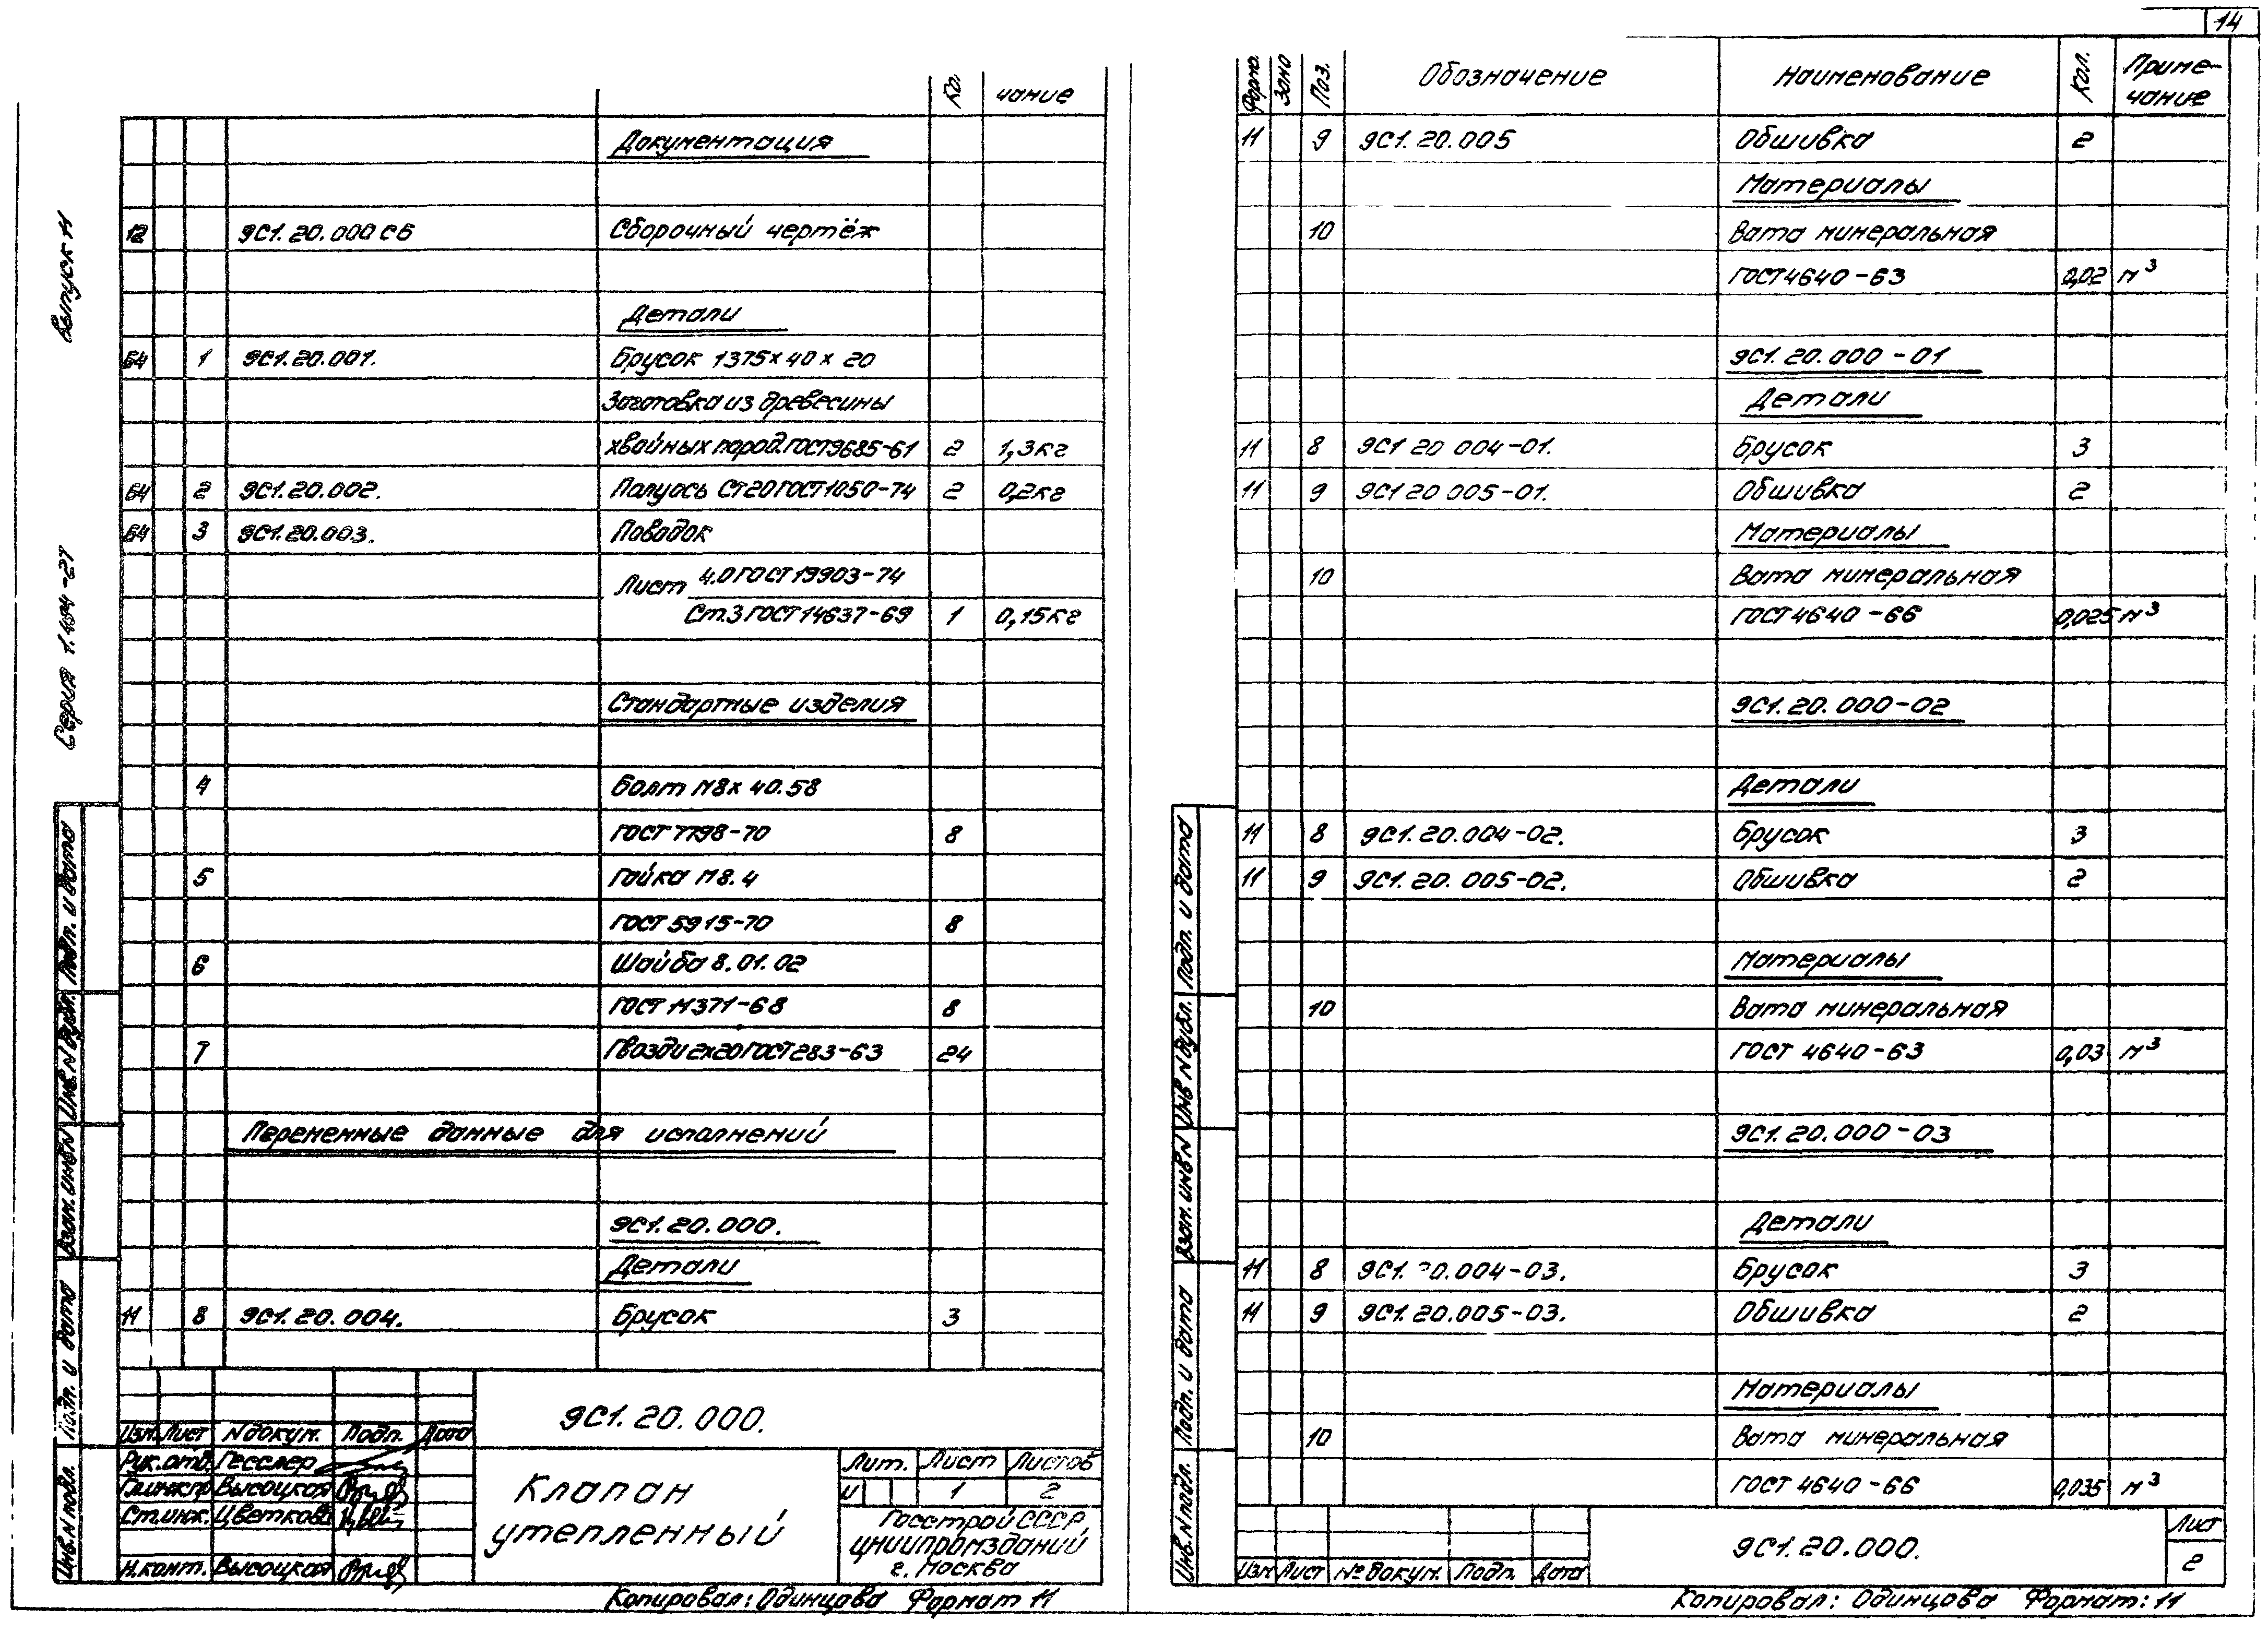 14
Выпуск 11
Серия 1.494-27
Ко. чание
Документация
12 9С1.20.000 СБ Сборочный чертёж
Детали
БЧ 1 9С1.20.001. Брусок 1375×40×20
Заготовка из древесины
хвойных пород. ГОСТ 9685-61 2 1,3кг
БЧ 2 9С1.20.002. Полуось Ст20 ГОСТ 1050-74 2 0,2кг
БЧ 3 9С1.20.003. Поводок
Лист 4.0 ГОСТ 19903-74
Ст.3 ГОСТ 14637-69 1 0,15кг
Стандартные изделия
4 Болт М8×40.58
ГОСТ 7798-70 8
5 Гайка М8.4
ГОСТ 5915-70 8
6 Шайба 8.01.02
ГОСТ 11371-68 8
7 Гвозди 2×20 ГОСТ 283-63 24
Переменные данные для исполнений
9С1.20.000.
Детали
11 8 9С1.20.004. Брусок 3
Подп. и дата
Инв. N дубл.
Взам. инв N
Подп. и дата
Инв. N подл.
9С1.20.000.
Изм Лист N докум. Подп. Дата
Рук.отд. Гесслер
Гл.инж.пр Высоцкая
Ст.инж. Цветкова
Н.конт. Высоцкая
Клапан
утепленный
Лит. Лист Листов
И 1 2
Госстрой СССР
ЦНИИПромзданий
г. Москва
Копировал: Одинцова Формат 11
Форм. Зона Поз. Обозначение Наименование Кол. Приме-
чание
11 9 9С1.20.005 Обшивка 2
Материалы
10 Вата минеральная
ГОСТ 4640-63 0,02 м³
9С1.20.000-01
Детали
11 8 9С1 20 004-01. Брусок 3
11 9 9С1 20 005-01. Обшивка 2
Материалы
10 Вата минеральная
ГОСТ 4640-66 0,025 м³
9С1.20.000-02
Детали
11 8 9С1.20.004-02. Брусок 3
11 9 9С1.20.005-02. Обшивка 2
Материалы
10 Вата минеральная
ГОСТ 4640-63 0,03 м³
9С1.20.000-03
Детали
11 8 9С1.20.004-03. Брусок 3
11 9 9С1.20.005-03. Обшивка 2
Материалы
10 Вата минеральная
ГОСТ 4640-66 0,035 м³
Подп. и дата
Инв N дубл.
Взам. инв N
Подп. и дата
Инв. N подл.
Изм Лист № докум. Подп. Дата
9С1.20.000.
Лист
2
Копировал: Одинцова Формат: 11